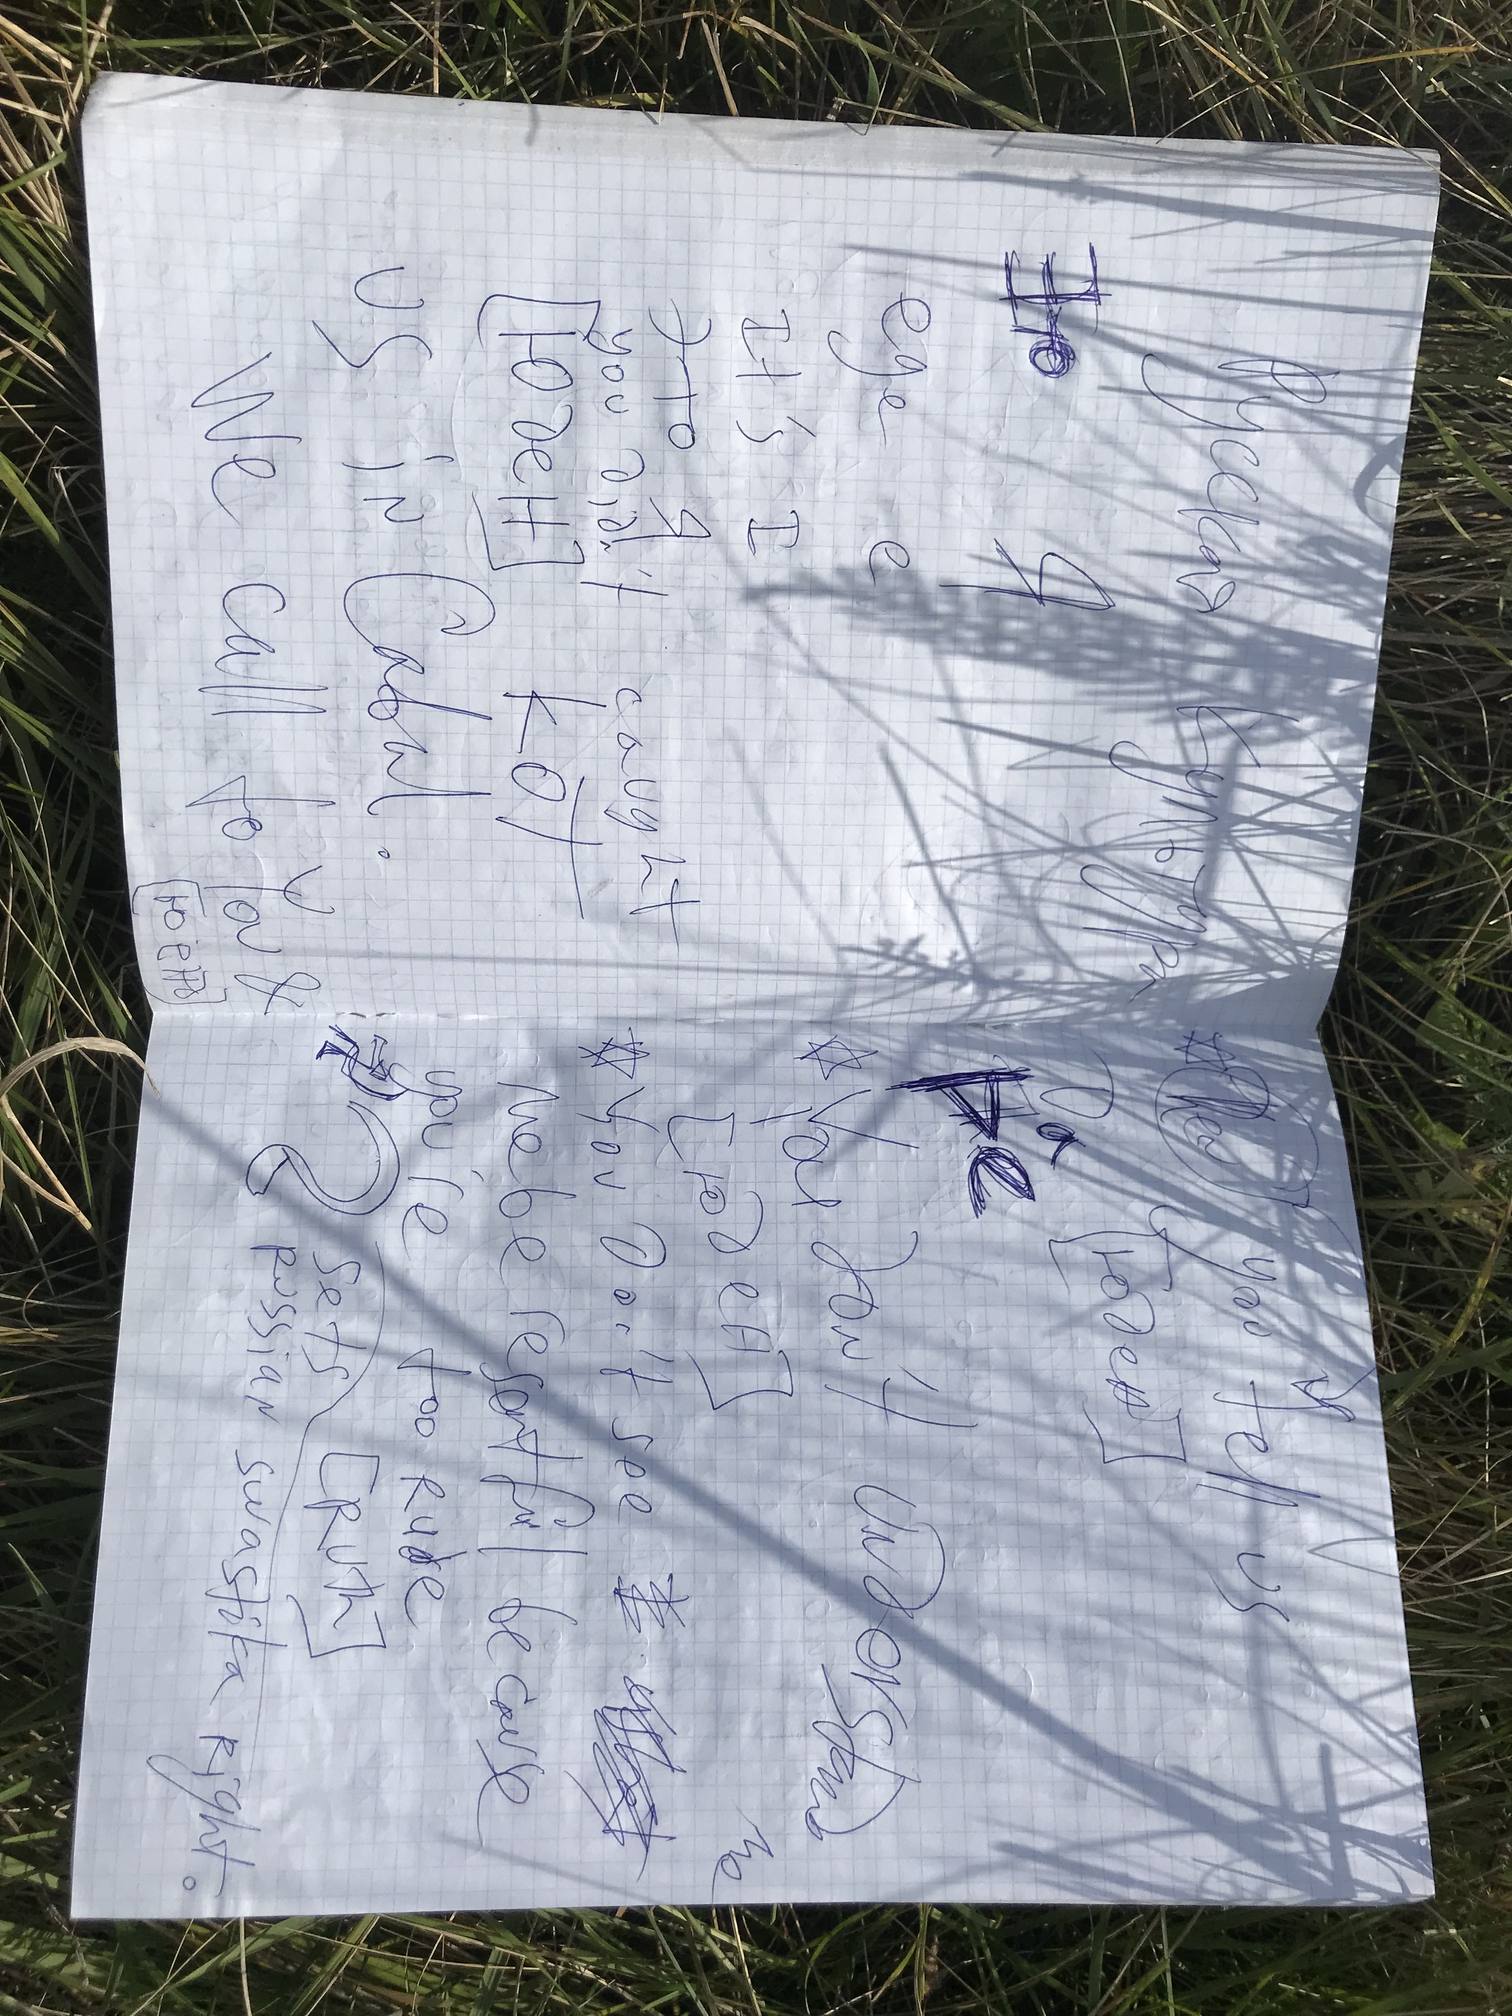 Русская культура
Я
еде е
It's I
это я
you didn't caught
[Юден] кот
us in Cabul.
We call to you &
you tell us
Да [Юден]
Де
☆ You don't understand
[Юден] me
☆ You don't see
me be resortful because
you're too rude
sets [RUTH]
russian swastika right.